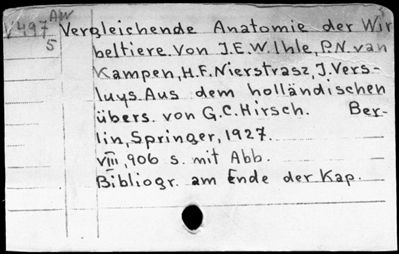 AW
V497
5
Vergleichende Anatomie der Wir
beltiere. Von J.E.W. Ihle, P.N. van
Kampen, H.F. Nierstrasz, J. Vers-
luys. Aus dem holländischen
übers. von G.C. Hirsch. Ber-
lin, Springer, 1927.
VIII, 906 s. mit Abb.
Bibliogr. am Ende der Kap.